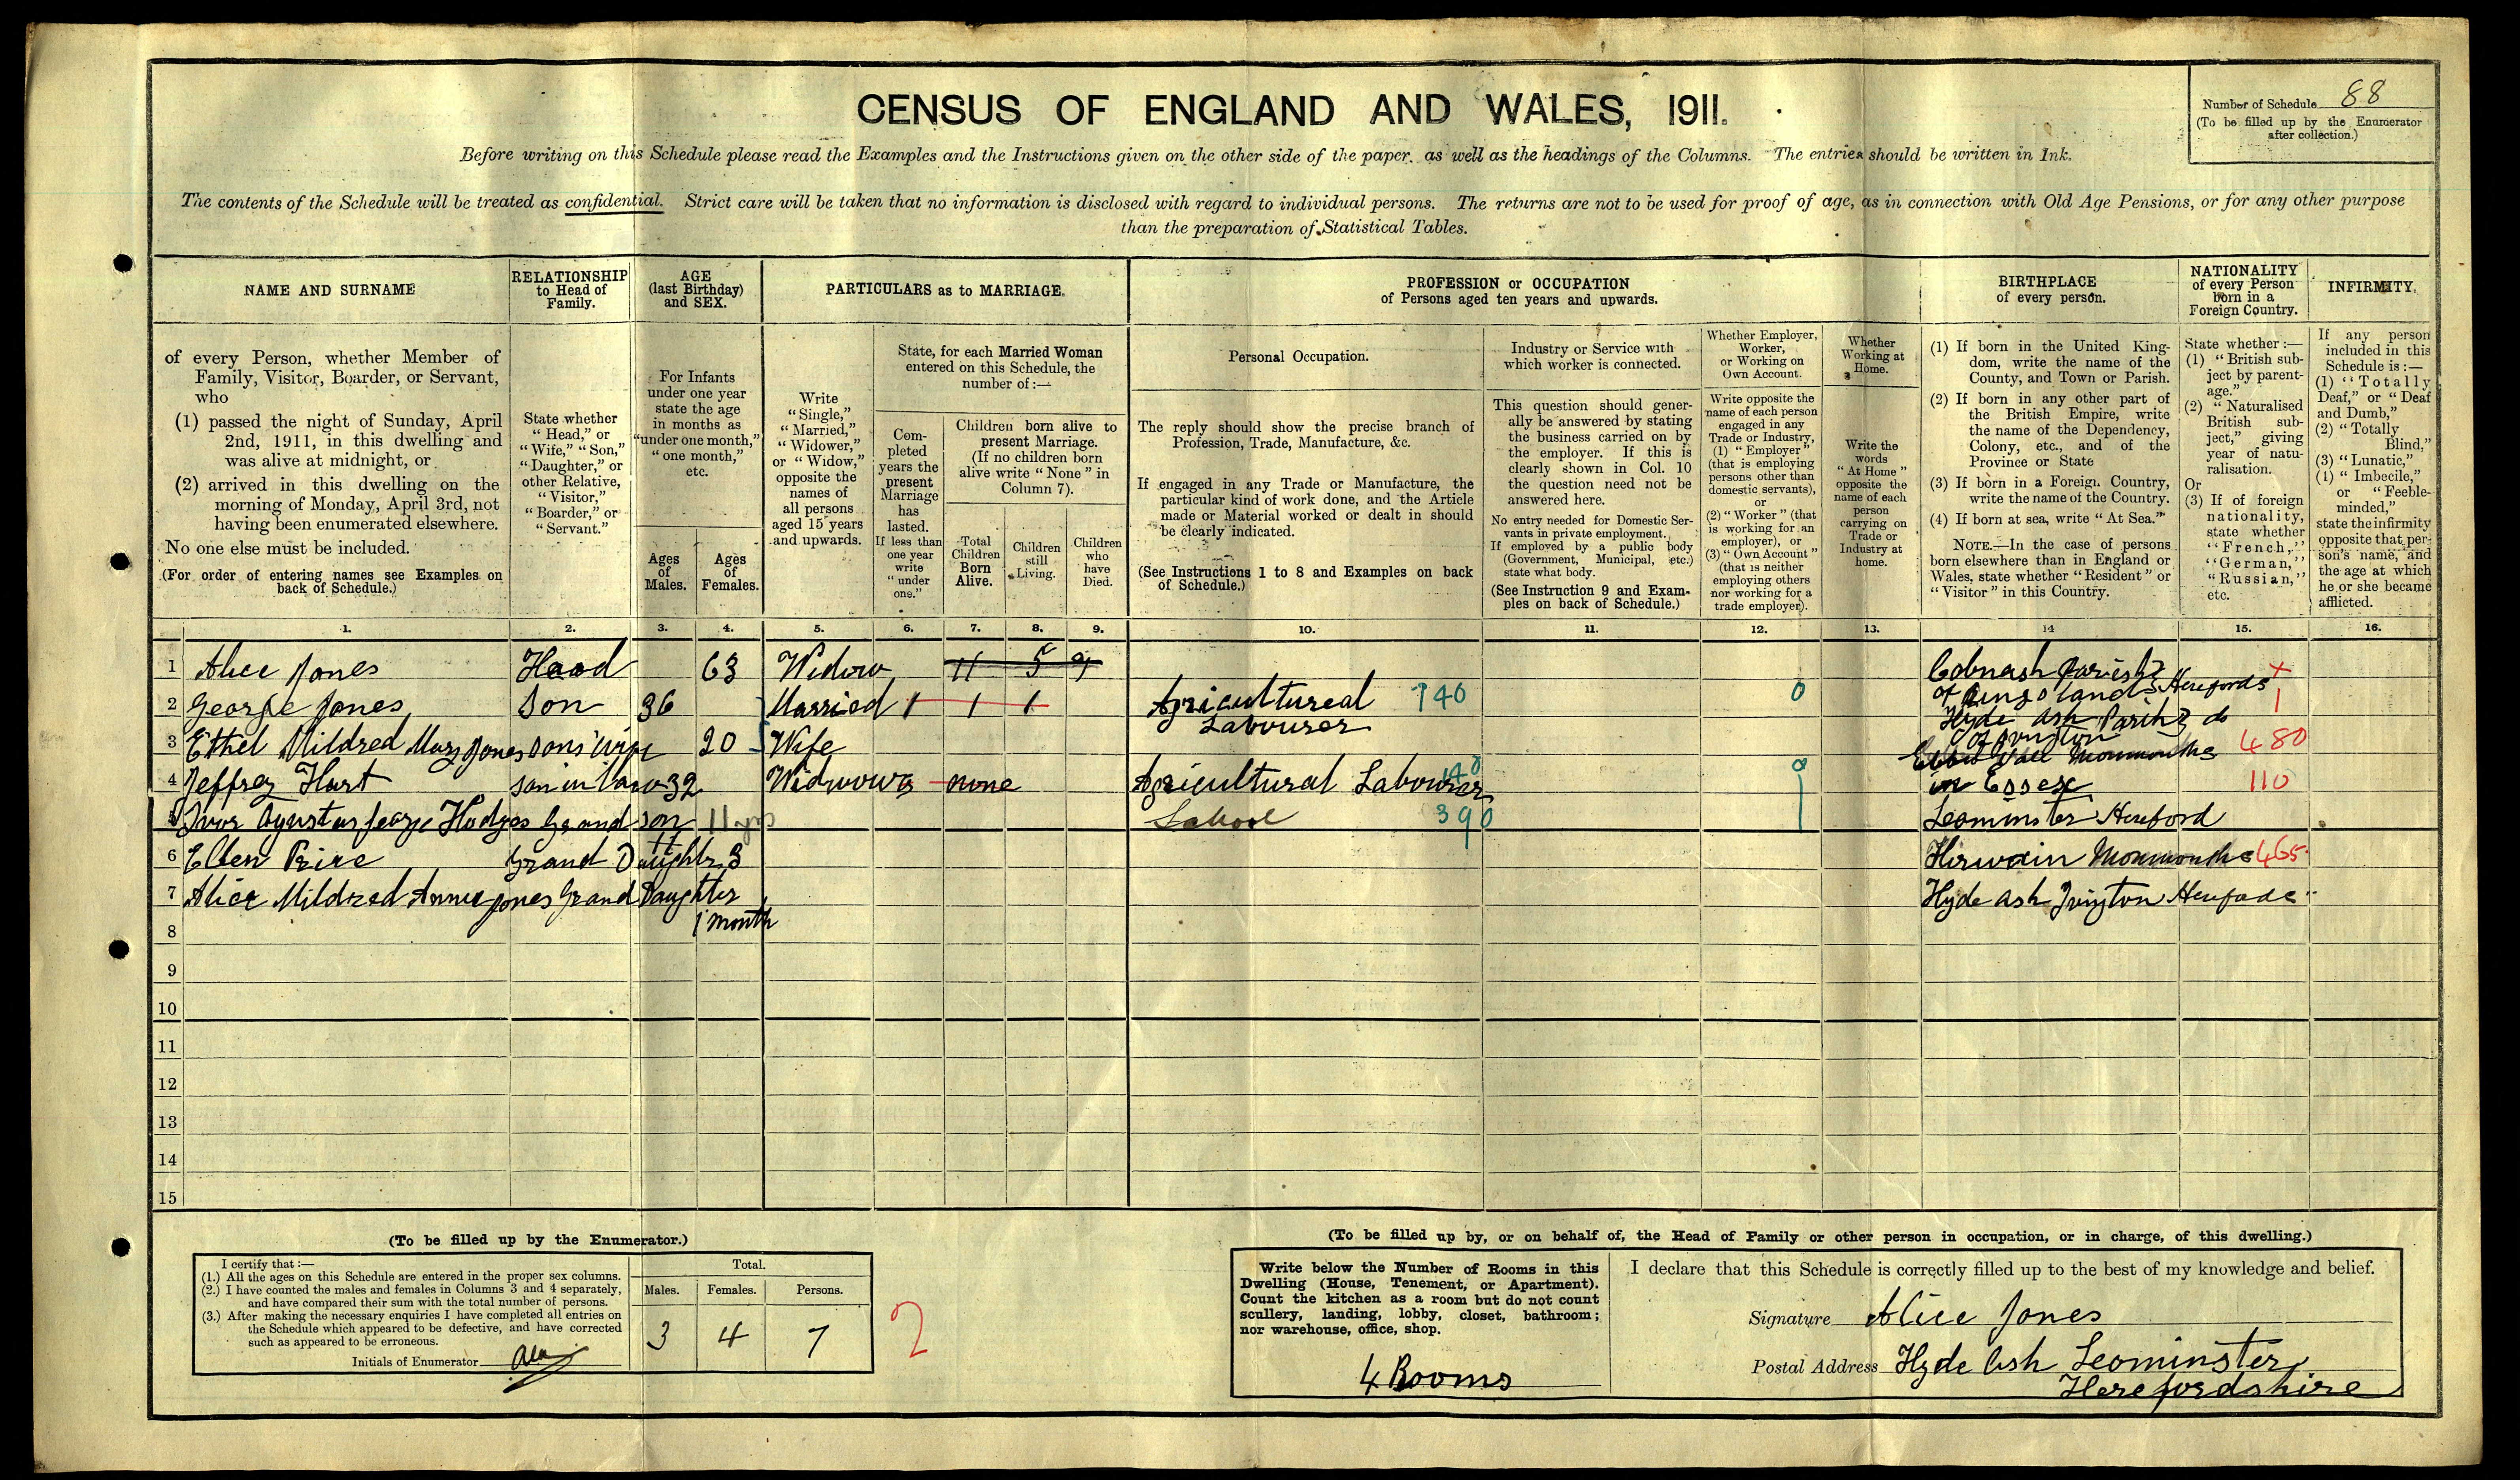 CENSUS OF ENGLAND AND WALES, 1911.
Number of Schedule 88
(To be filled up by the Enumerator
after collection.)
Before writing on this Schedule please read the Examples and the Instructions given on the other side of the paper, as well as the headings of the Columns. The entries should be written in Ink.
The contents of the Schedule will be treated as confidential. Strict care will be taken that no information is disclosed with regard to individual persons. The returns are not to be used for proof of age, as in connection with Old Age Pensions, or for any other purpose
than the preparation of Statistical Tables.
NAME AND SURNAME
of every Person, whether Member of
Family, Visitor, Boarder, or Servant,
who
(1) passed the night of Sunday, April
2nd, 1911, in this dwelling and
was alive at midnight, or
(2) arrived in this dwelling on the
morning of Monday, April 3rd, not
having been enumerated elsewhere.
No one else must be included.
(For order of entering names see Examples on
back of Schedule.)
RELATIONSHIP
to Head of
Family.
State whether
"Head," or
"Wife," "Son,"
"Daughter," or
other Relative,
"Visitor,"
"Boarder," or
"Servant."
AGE
(last Birthday)
and SEX.
For Infants
under one year
state the age
in months as
"under one month,"
"one month,"
etc.
Ages
of
Males.
Ages
of
Females.
PARTICULARS as to MARRIAGE.
Write
"Single,"
"Married,"
"Widower,"
or "Widow,"
opposite the
names of
all persons
aged 15 years
and upwards.
State, for each Married Woman
entered on this Schedule, the
number of:—
Com-
pleted
years the
present
Marriage
has
lasted.
If less than
one year
write
"under
one."
Children born alive to
present Marriage.
(If no children born
alive write "None" in
Column 7).
Total
Children
Born
Alive.
Children
still
Living.
Children
who
have
Died.
PROFESSION or OCCUPATION
of Persons aged ten years and upwards.
Personal Occupation.
The reply should show the precise branch of
Profession, Trade, Manufacture, &c.
If engaged in any Trade or Manufacture, the
particular kind of work done, and the Article
made or Material worked or dealt in should
be clearly indicated.
(See Instructions 1 to 8 and Examples on back
of Schedule.)
Industry or Service with
which worker is connected.
This question should gener-
ally be answered by stating
the business carried on by
the employer. If this is
clearly shown in Col. 10
the question need not be
answered here.
No entry needed for Domestic Ser-
vants in private employment.
If employed by a public body
(Government, Municipal, etc.)
state what body.
(See Instruction 9 and Exam-
ples on back of Schedule.)
Whether Employer,
Worker,
or Working on
Own Account.
Write opposite the
name of each person
engaged in any
Trade or Industry,
(1) "Employer"
(that is employing
persons other than
domestic servants),
or
(2) "Worker" (that
is working for an
employer), or
(3) "Own Account"
(that is neither
employing others
nor working for a
trade employer).
Whether
Working at
Home.
Write the
words
"At Home"
opposite the
name of each
person
carrying on
Trade or
Industry at
home.
BIRTHPLACE
of every person.
(1) If born in the United King-
dom, write the name of the
County, and Town or Parish.
(2) If born in any other part of
the British Empire, write
the name of the Dependency,
Colony, etc., and of the
Province or State
(3) If born in a Foreign Country,
write the name of the Country.
(4) If born at sea, write "At Sea."
NOTE.—In the case of persons
born elsewhere than in England or
Wales, state whether "Resident" or
"Visitor" in this Country.
NATIONALITY
of every Person
born in a
Foreign Country.
State whether:—
(1) "British sub-
ject by parent-
age."
(2) "Naturalised
British sub-
ject," giving
year of natu-
ralisation.
Or
(3) If of foreign
nationality,
state whether
"French,"
"German,"
"Russian,"
etc.
INFIRMITY.
If any person
included in this
Schedule is:—
(1) "Totally
Deaf," or "Deaf
and Dumb,"
(2) "Totally
Blind,"
(3) "Lunatic,"
(1) "Imbecile,"
or "Feeble-
minded,"
state the infirmity
opposite that per-
son's name, and
the age at which
he or she became
afflicted.
1. 2. 3. 4. 5. 6. 7. 8. 9. 10. 11. 12. 13. 14 15. 16.
1 Alice Jones Head 63 Widow 11 5 Cobnash Parish
of Kingsland Herefords
2 George Jones Son 36 Married 1 1 1 Agricultureal 140 0 1
Labourer Hyde Ash Parish do
of Ivington
3 Ethel Mildred Mary Jones Sons Wife 20 Wife Ebbw Vale Monmouths 480
4 Jeffrey Hart son in law 32 none Agricultural Labourer 140 0 in Essex 110
5 Ivor George Hodges Grand son 11 yrs School 390 Leominster Hereford
6 Ellen Price Grand Daughter 3 Hirwain 465
7 Alice Mildred Annie Jones Grand Daughter
1 month Hyde Ash Ivington
8
9
10
11
12
13
14
15
(To be filled up by the Enumerator.)
I certify that:—
(1.) All the ages on this Schedule are entered in the proper sex columns.
(2.) I have counted the males and females in Columns 3 and 4 separately,
and have compared their sum with the total number of persons.
(3.) After making the necessary enquiries I have completed all entries on
the Schedule which appeared to be defective, and have corrected
such as appeared to be erroneous.
Initials of Enumerator
Total.
Males. Females. Persons.
3 4 7
2
(To be filled up by, or on behalf of, the Head of Family or other person in occupation, or in charge, of this dwelling.)
Write below the Number of Rooms in this
Dwelling (House, Tenement, or Apartment).
Count the kitchen as a room but do not count
scullery, landing, lobby, closet, bathroom;
nor warehouse, office, shop.
4 Rooms
I declare that this Schedule is correctly filled up to the best of my knowledge and belief.
Signature Alice Jones
Postal Address Hyde Ash Leominster
Herefordshire